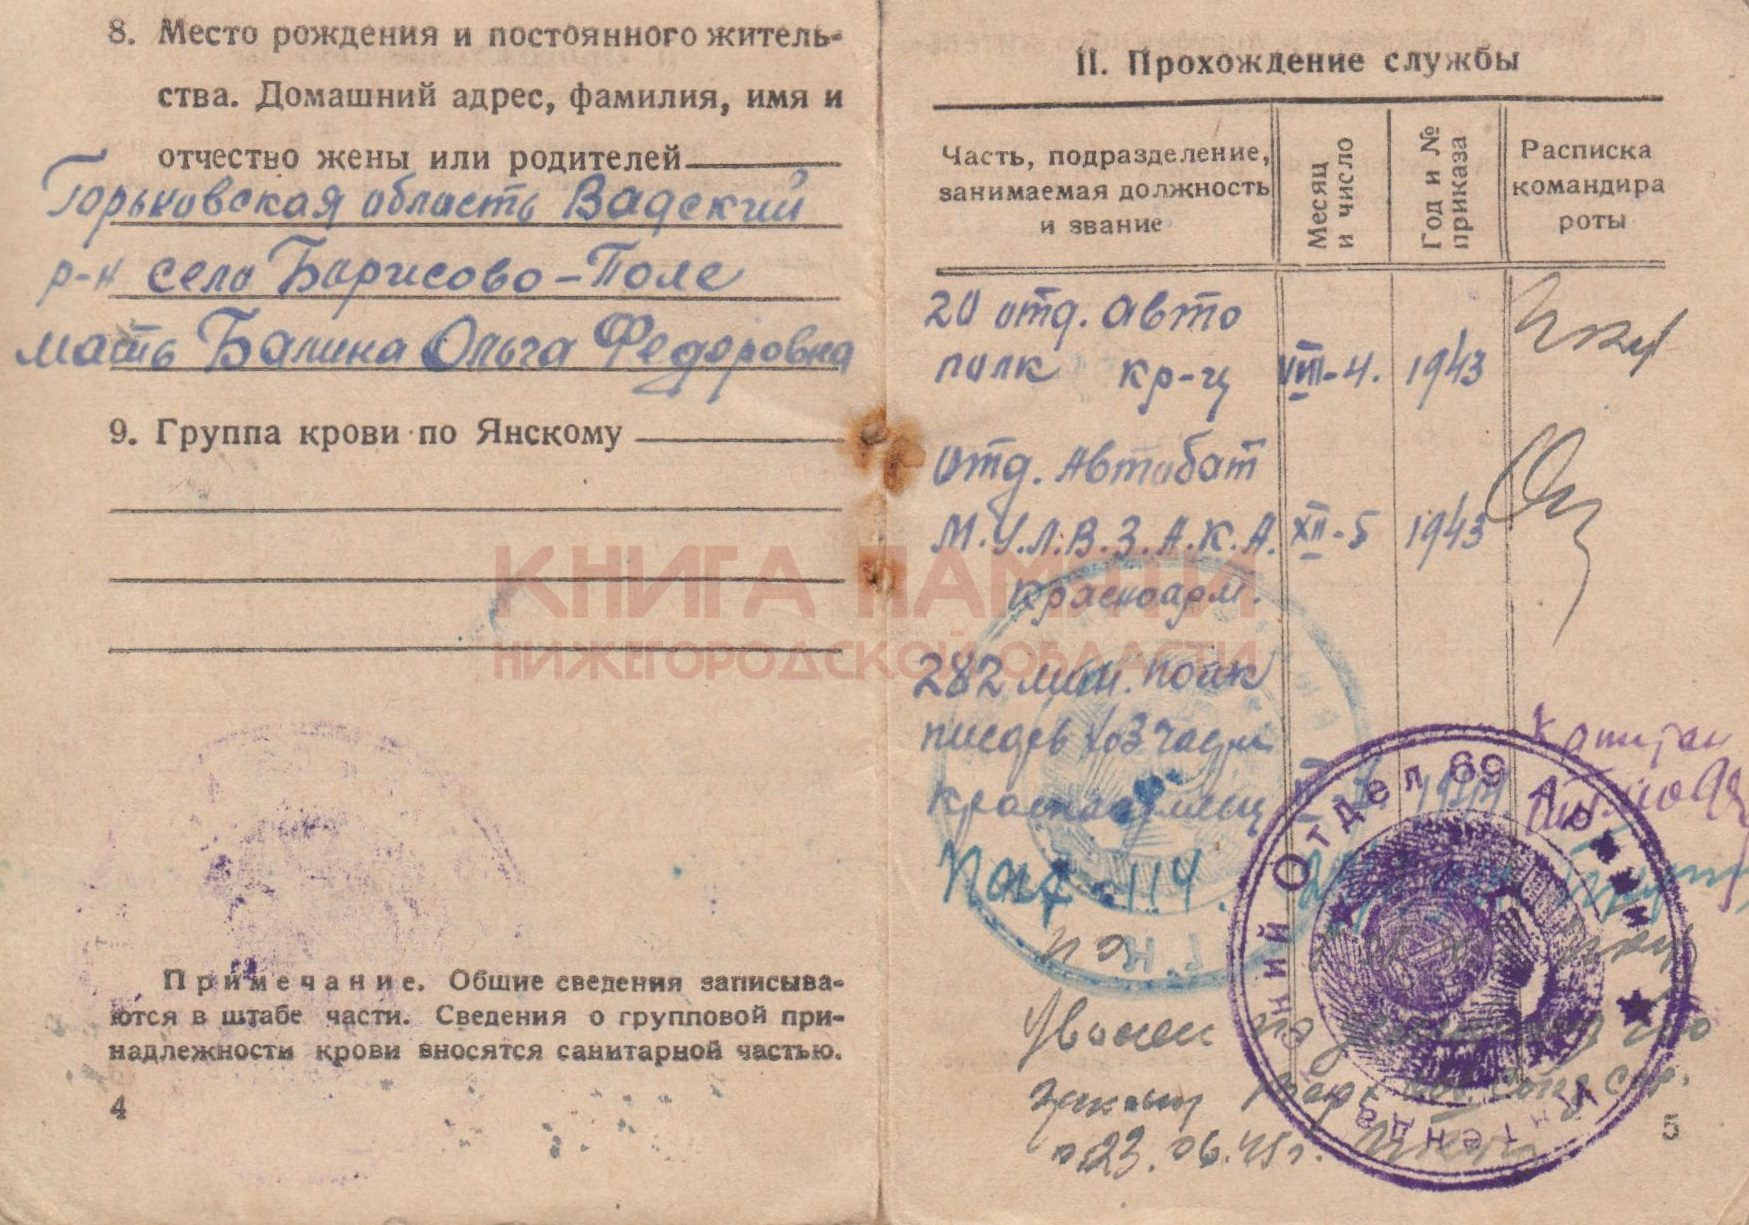 8. Место рождения и постоянного житель-
ства. Домашний адрес, фамилия, имя и
отчество жены или родителей
Горьковская область Вадский
р-н село Борисово-Поле
мать Балина Ольга Федоровна
9. Группа крови по Янскому
Примечание. Общие сведения записыва-
ются в штабе части. Сведения о групповой при-
надлежности крови вносятся санитарной частью.
4
II. Прохождение службы
Часть, подразделение,
занимаемая должность
и звание
Месяц
и число
Год и №
приказа
Расписка
командира
роты
20 отд. авто
полк кр-ц VIII-4. 1943
отд. автобат
М.У.Л.В.З.А.К.А. XII-5 1943
красноарм.
282 мин. полк
писарь хозчасти
красноармеец
Капитан
Уволен по
23.06.45г.
5
Отдел 69 Армии
КНИГА ПАМЯТИ
НИЖЕГОРОДСКОЙ ОБЛАСТИ